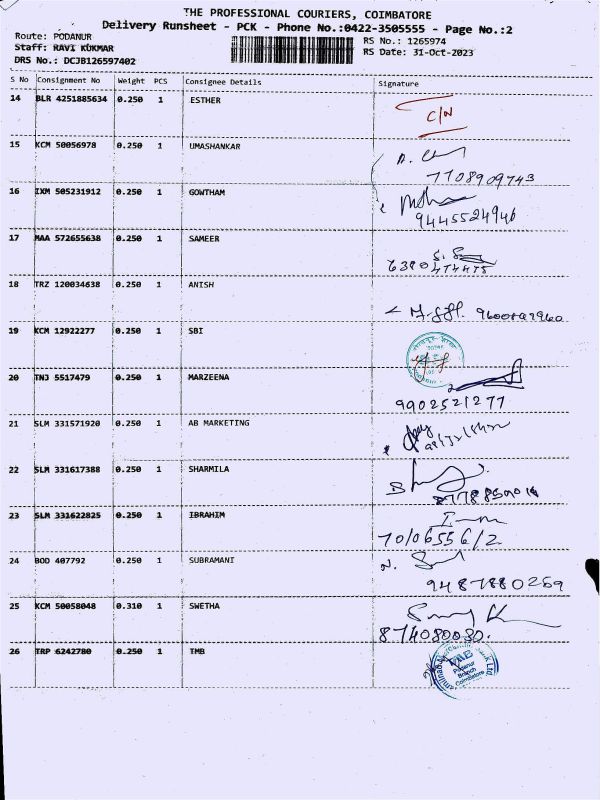 THE PROFESSIONAL COURIERS, COIMBATORE
Delivery Runsheet - PCK - Phone No.:0422-3505555 - Page No.:2
Route: PODANUR
RS No.: 1265974
Staff: RAVI KUKMAR
RS Date: 31-Oct-2023
DRS No.: DCJB126597402
S No Consignment No Weight PCS Consignee Details Signature
14 BLR 4251885634 0.250 1 ESTHER
C/N
15 KCM 50056978 0.250 1 UMASHANKAR
7708909743
16 IXM 505231912 0.250 1 GOWTHAM
9445524946
17 MAA 572655638 0.250 1 SAMEER
18 TRZ 120034638 0.250 1 ANISH
19 KCM 12922277 0.250 1 SBI
20 TNJ 5517479 0.250 1 MARZEENA
9902521277
21 SLM 331571920 0.250 1 AB MARKETING
22 SLM 331617388 0.250 1 SHARMILA
23 SLM 331622825 0.250 1 IBRAHIM
7010655612
24 BOD 407792 0.250 1 SUBRAMANI
9487880259
25 KCM 50058048 0.310 1 SWETHA
874080030.
26 TRP 6242780 0.250 1 TMB
Podanur
Branch
Coimbatore